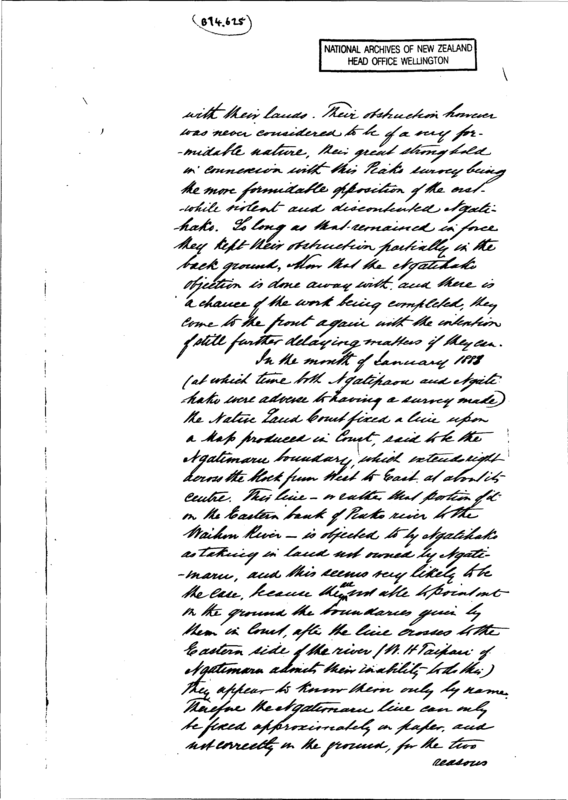 B94.625
NATIONAL ARCHIVES OF NEW ZEALAND
HEAD OFFICE WELLINGTON
with their lands. Their obstruction however
was never considered to be of a very for-
-midable nature, their great stronghold
in connexion with this Piako survey being
the more formidable opposition of the erst-
-while violent and discontented Ngati-
hako. So long as that remained in force
they kept their obstruction partially in the
back ground, Now that the Ngatihako
objection is done away with, and there is
a chance of the work being completed, they
come to the front again with the intention
of still further delaying matters if they can.
In the month of January 1883
(at which time both Ngatipaoa and Ngati
hako were adverse to having a survey made)
the Native Land Court fixed a line upon
a Map produced in Court, said to be the
Ngatimaru boundary, which extends right
across the block from West to East, at about its
centre. This line - or rather that portion of it
on the Eastern bank of Piako river to the
Waihou River - is objected to by Ngatihako
as taking in land not owned by Ngati-
-maru, and this seems very likely to be
the case, because they are not able to point out
on the ground the boundaries given by
them in Court, after the line crosses to the
Eastern side of the river (W. H. Taipari of
Ngatimaru admits their inability to do this)
They appear to know them only by name.
Therefore the Ngatimaru line can only
be fixed approximately on paper, and
not correctly on the ground, for the two
reasons